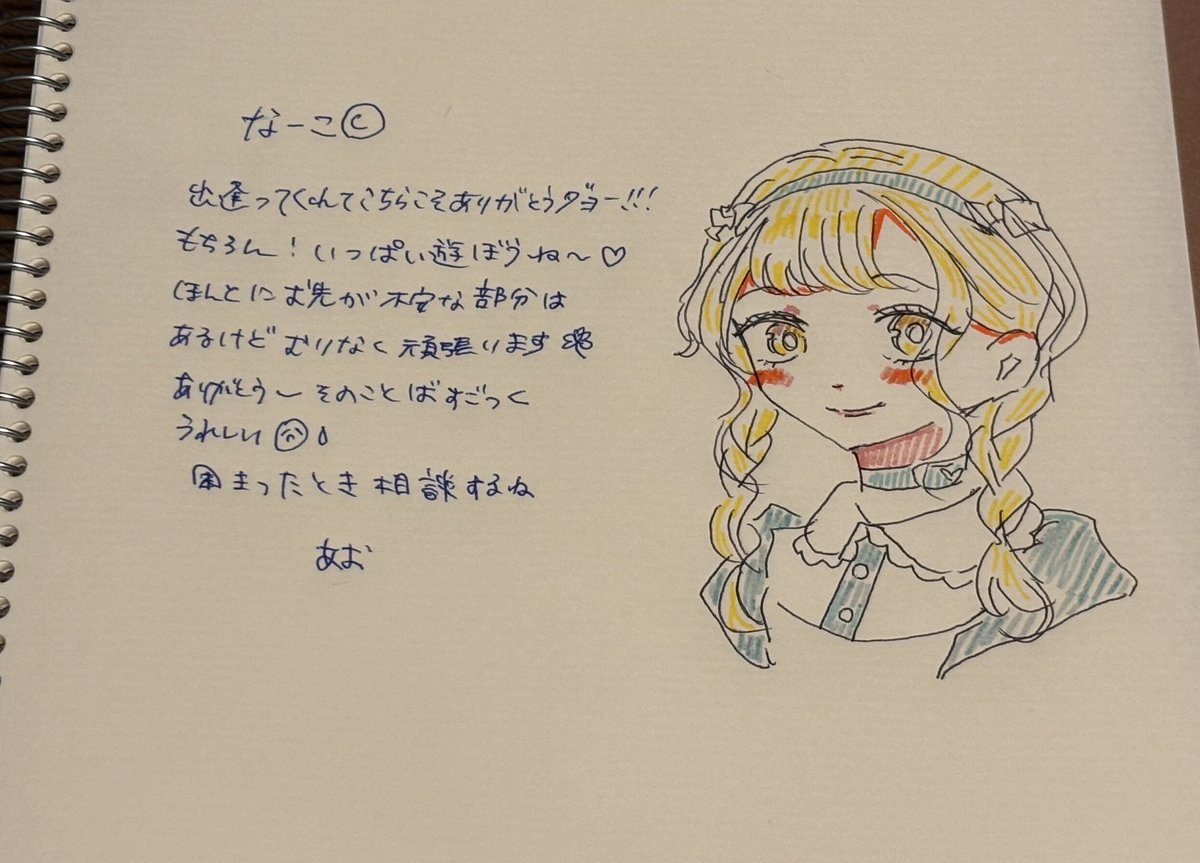 なーこ
出逢ってくれてこちらこそありがとうダヨー!!!
もちろん!いっぱい遊ぼうね〜♡
ほんとにお先が不安な部分は
あるけどむりなく頑張ります
ありがとう〜そのことばすごっく
うれしい
困まったとき相談するね
あお